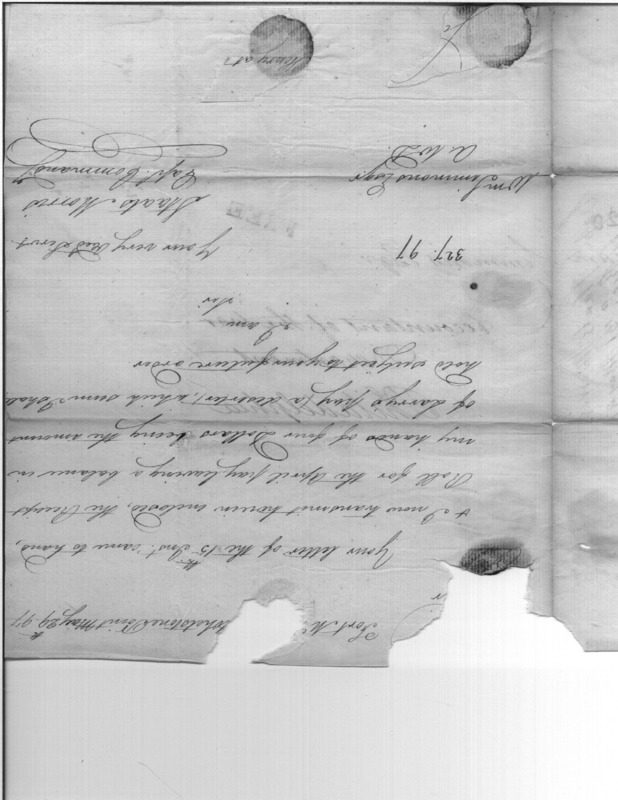 Fort M Whetstone Point May 29th 97
Your letter of the 15th Inst. came to hand,
& I now transmit herein inclosed, the Receipt
Roll for the April pay, leaving a balance in
my hands of four Dollars being the amount
of Larry's pay (a deserter), which sum I shall
hold subject to your future order
I am
Sir
Your very Obed Servt.
Staats Morris
Capt. Command.
327. 97
Wm Simmons Esqr
A. W. D.
FREE